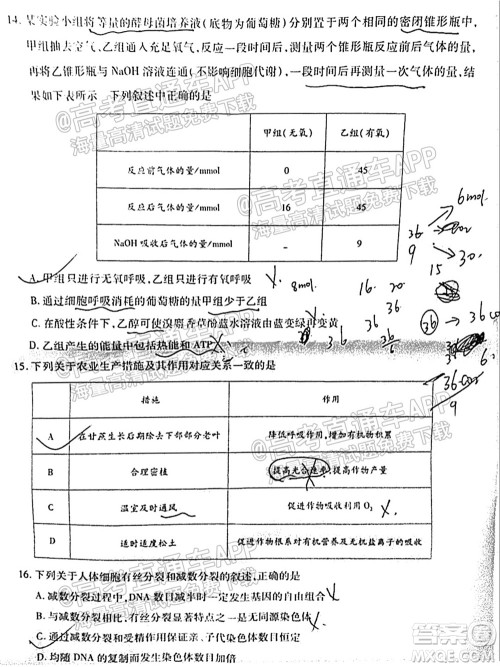 14. 某实验小组将等量的酵母菌培养液(底物为葡萄糖)分别置于两个相同的密闭锥形瓶中,
甲组抽去空气,乙组通入充足氧气,反应一段时间后,测量其反应前后气体的量,
再将乙锥形瓶与 NaOH 溶液连通(不影响细胞代谢),一段时间后再测量一次气体的量,结
果如下表所示。下列叙述中正确的是
甲组(无氧) 乙组(有氧)
反应前气体的量/mmol 0 45
反应后气体的量/mmol 16 45
NaOH 吸收后气体的量/mmol - 9
6mol
36
9
15
30.
A. 甲组只进行无氧呼吸,乙组只进行有氧呼吸
8mol
16.
B. 通过细胞呼吸消耗的葡萄糖的量甲组少于乙组
36
C. 在酸性条件下,乙醇可使溴麝香草酚蓝水溶液由蓝变绿再变黄
D. 乙组产生的能量中包括热能和 ATP
15. 下列关于农业生产措施及其作用对应关系一致的是
措施 作用
A 在甘蔗生长后期除去下部部分老叶 降低呼吸作用,增加有机物积累
B 合理密植 提高光合速率,提高作物产量
C 温室及时通风 促进作物吸收利用 O₂
D 适时适度松土 促进作物根系对有机营养及无机盐离子的吸收
16. 下列关于人体细胞有丝分裂和减数分裂的叙述,正确的是
A. 减数分裂过程中,DNA 数目减半时一定发生基因的自由组合
B. 与减数分裂相比,有丝分裂显著特点之一是无同源染色体
C. 通过减数分裂和受精作用保证亲、子代染色体数目恒定
D. 均随 DNA 的复制而发生染色体数目加倍
高考直通车APP
海量高清试题免费下载